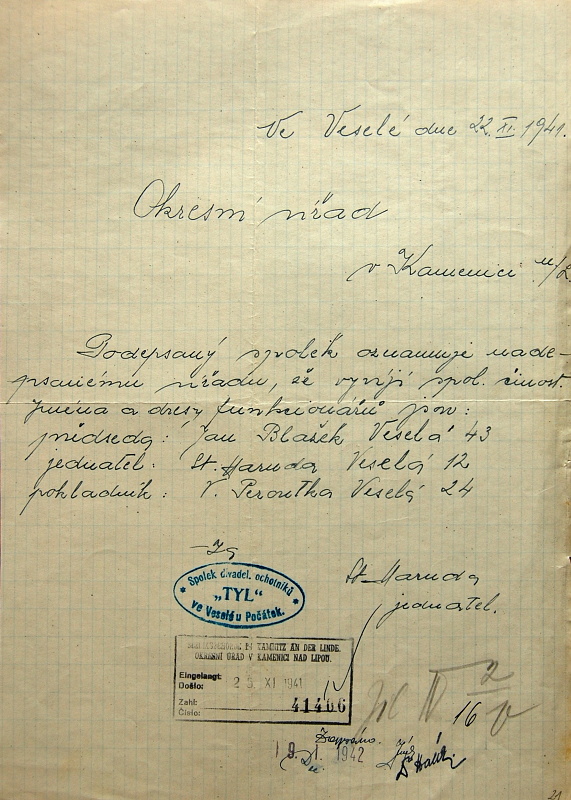 Ve Veselé dne 22. XI. 1941.
Okresní úřad
v Kamenici n/L.
Podepsaný spolek oznamuje nade-
psanému úřadu, že vyvíjí spol. činost.
Jména a adresy funkcionářů jsou:
předseda: Jan Blažek Veselá 43
jednatel: St. Maruda Veselá 12
pokladník: V. Peroutka Veselá 24
Za
Spolek divadel. ochotníků
„TYL“
ve Veselé u Počátek.
St. Maruda
jednatel.
KAMNITZ AN DER LINDE.
OKRESNÍ ÚŘAD V KAMENICI NAD LIPOU.
Eingelangt:
Došlo: 25. XI 1941
Zahl:
Číslo: 41466
IV 2
16
19. 1. 1942
21